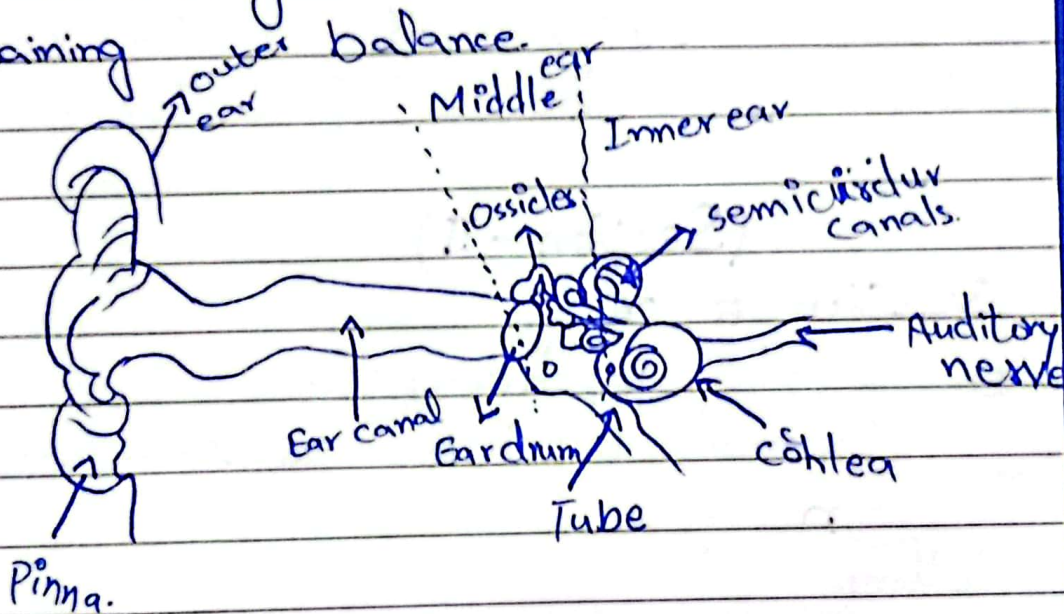 aining balance.
outer
ear
Middle ear
Inner ear
Ossicles
semicirclur
canals.
Auditory
nerve
Ear canal
Eardrum
Cohlea
Tube
Pinna.